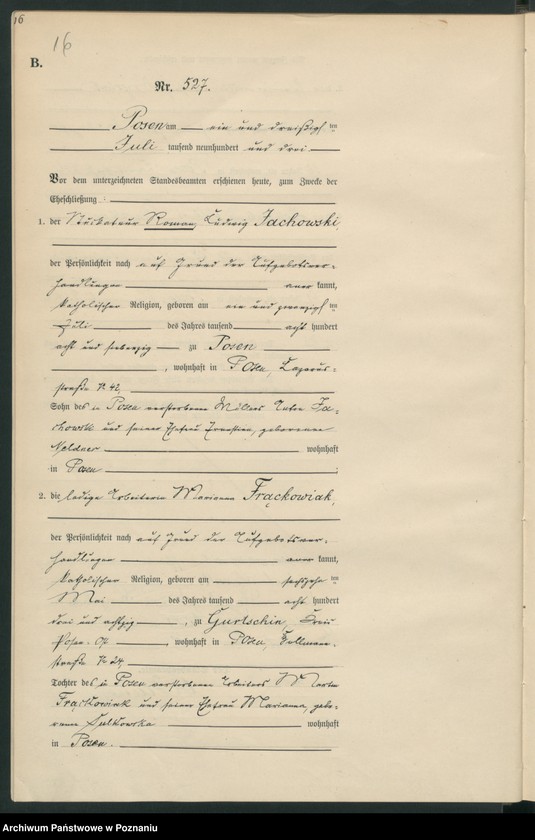 16
16
B.
Nr. 527.
Posen am ein und dreißigsten
Juli tausend neunhundert und drei
Vor dem unterzeichneten Standesbeamten erschienen heute, zum Zwecke der
Eheschließung:
1. der Stuckateur Roman Ludwig Jachowski,
der Persönlichkeit nach auf Grund der Aufgebotsver-
handlungen anerkannt,
katholischer Religion, geboren am ein und zwanzigsten
Juli des Jahres tausend acht hundert
acht und siebenzig zu Posen
, wohnhaft in Posen, Lazarus-
straße N 42,
Sohn des in Posen verstorbenen Ja-
chowski und seiner Ehefrau Ernestine, geborenen
wohnhaft
in Posen
2. die ledige Arbeiterin Marianna Frąckowiak,
der Persönlichkeit nach auf Grund der Aufgebotsver-
handlungen anerkannt,
katholischer Religion, geboren am sechszehnten
Mai des Jahres tausend acht hundert
drei und achtzig, zu Gurtschin, Kreis
Posen-, wohnhaft in Posen,
straße N 24,
Tochter des in Posen verstorbenen Arbeiters Martin
Frąckowiak und seiner Ehefrau Marianna, gebo-
renen Sulkowska wohnhaft
in Posen.
Archiwum Państwowe w Poznaniu